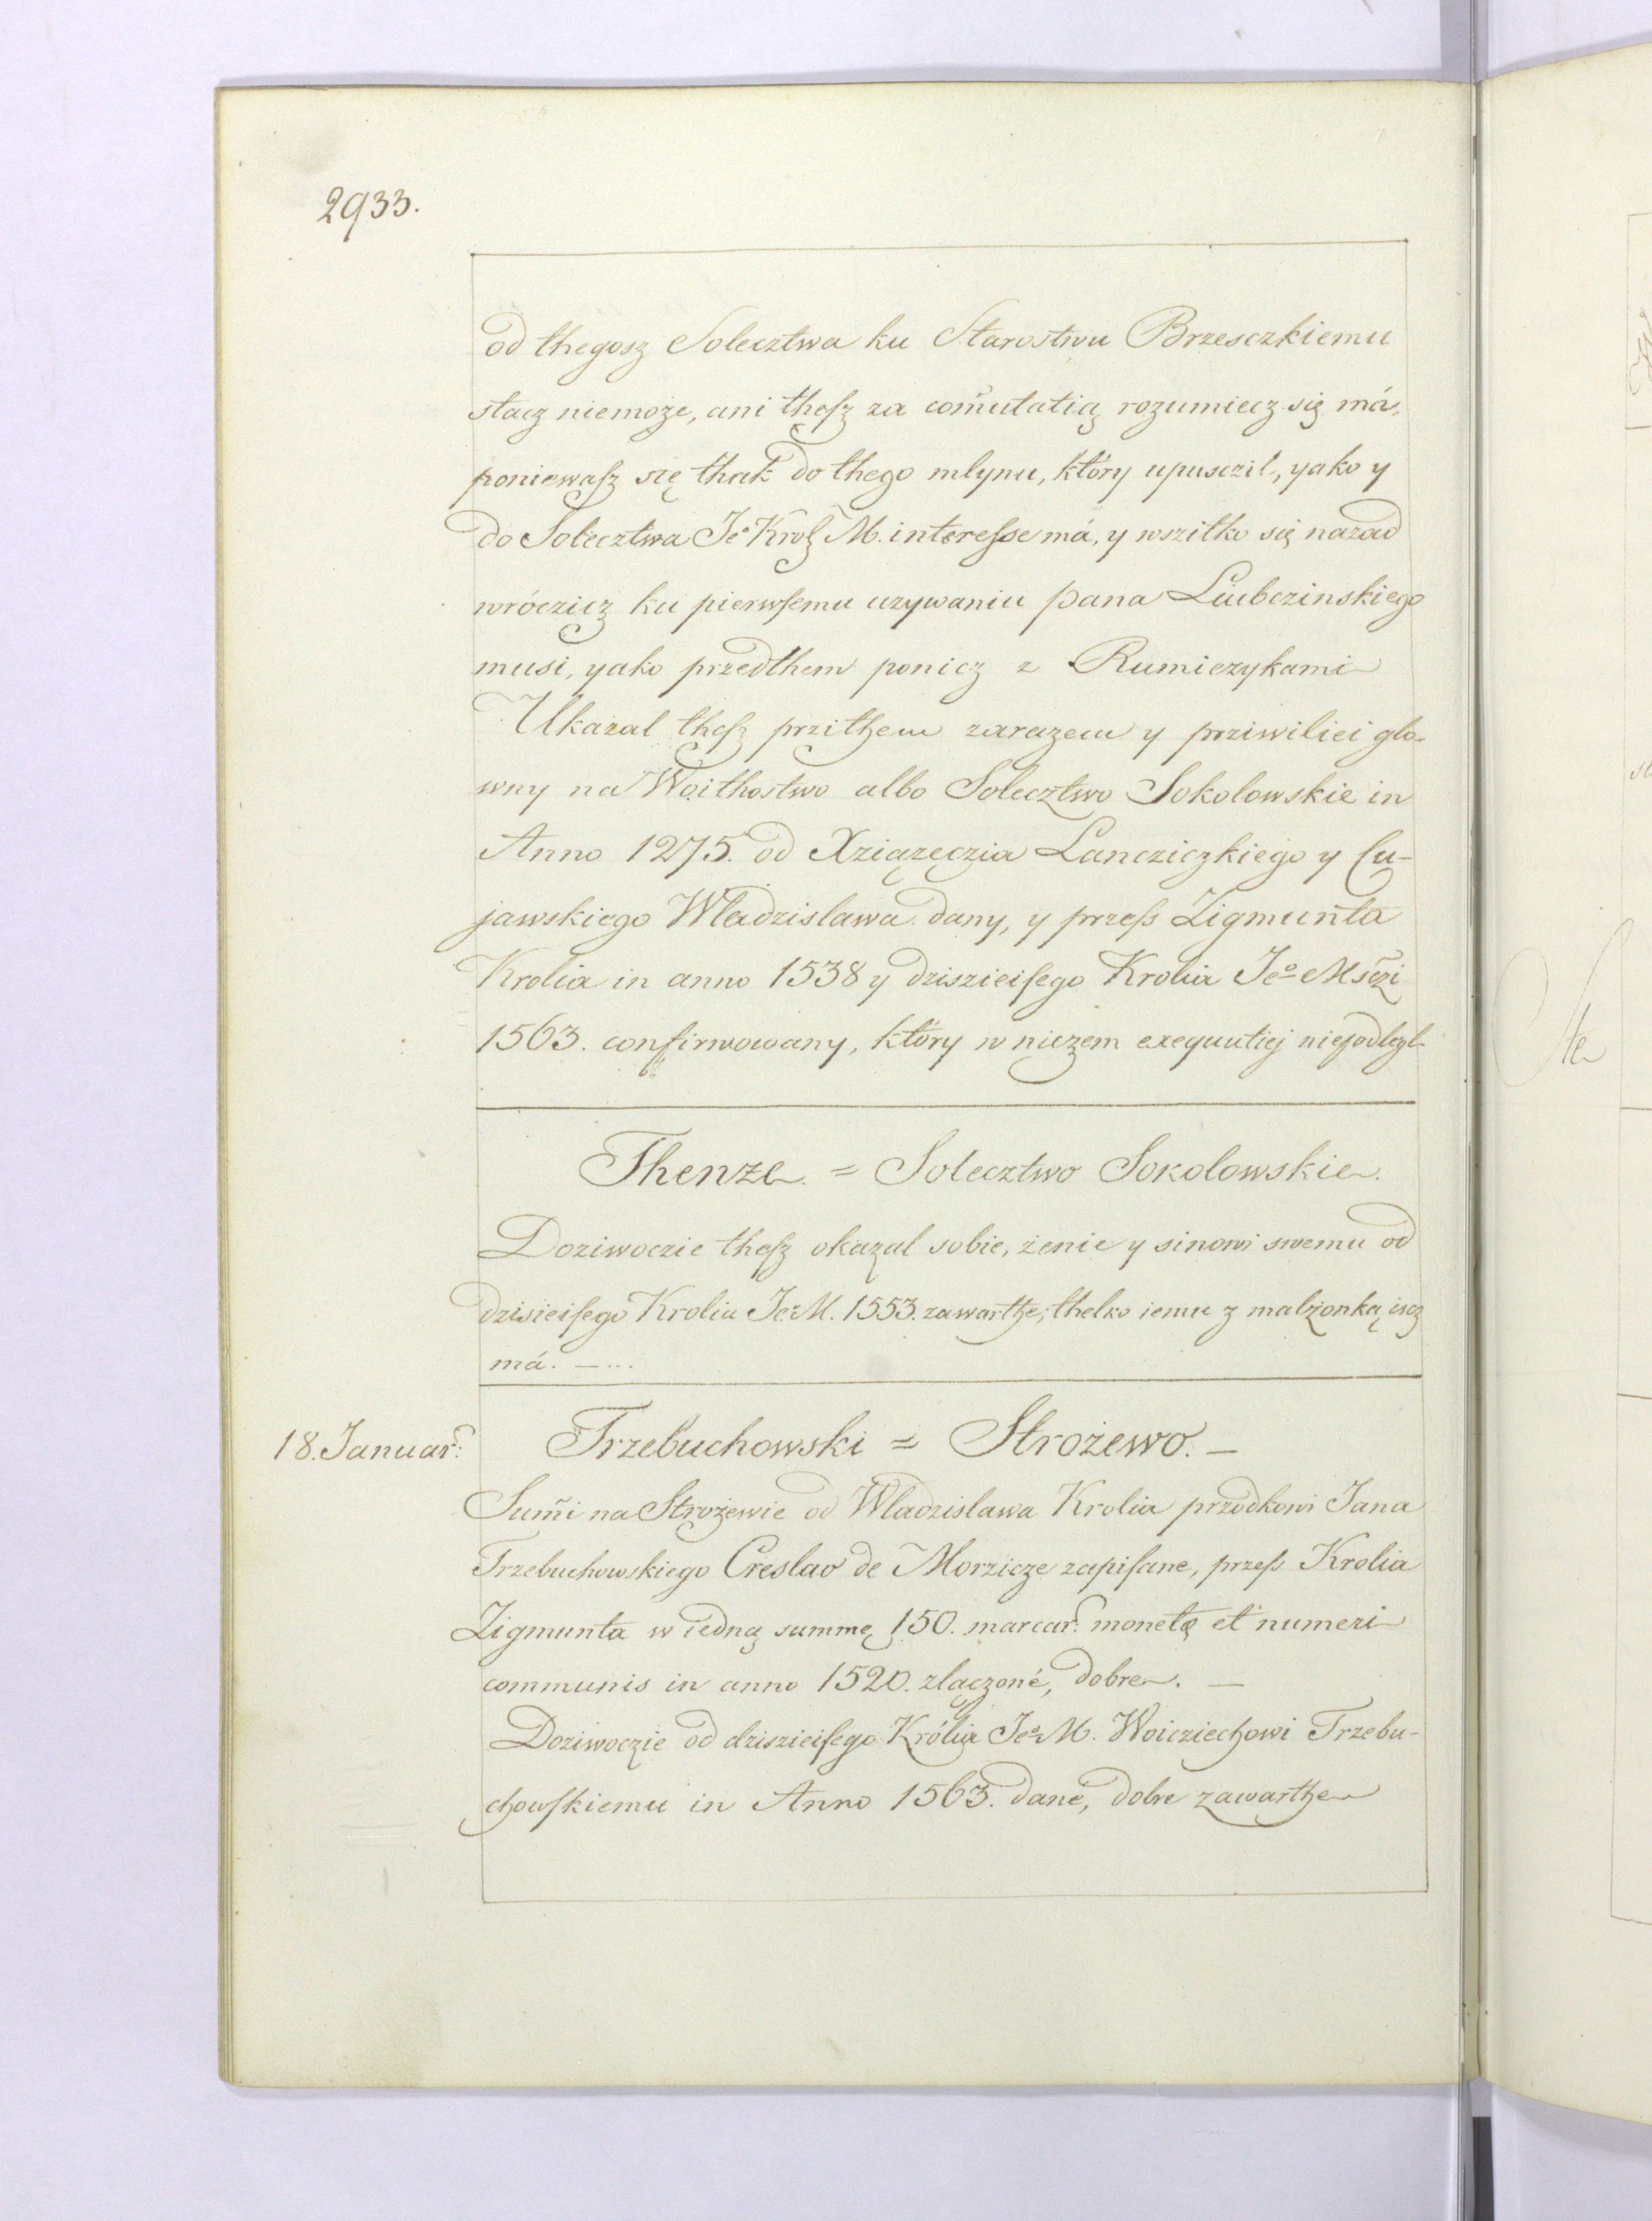 2933.
od thegosz Solecztwa ku Starostwu Brzesczkiemu
stacz niemoze, ani theſz za com̃utatią rozumiecz się má,
poniewaſz się thak do thego mlynu, który upusczil, yako y
do Solecztwa Jeº Krolȝ M. intereſse má, y wszitko się nazad
wróczicz ku pierwſemu uzywaniu pana Liubczinskiego
musi, yako przedthem ponicz z Rumiezykami
Ukazal theſz przithem zarazem y prziwiliei glo-
wny na Woithostwo albo Solecztwo Sokolowskie in
Anno 1275. od Xziązęczia Lancziczkiego y Cu-
jawskiego Wladzislawa dany, y przeſs Zigmunta
Krolia in anno 1538 y dziszieiſego Krolia Jeº Msczi
1563. confirmowany, który w niczem exequutiej niepodlegl.
Thenze = Solecztwo Sokolowskie.
Doziwoczie theſz okazal sobie, żenie y sinowi swemu od
dzisieiſego Krolia Jeº M. 1553. zawarthe, thelko iemu z malzonką iscz
má. — ...
18. Januar:
Trzebuchowski = Strożewo. —
Sum̃i na Strożewie od Wladzislawa Krolia przodkowi Jana
Trzebuchowskiego Creslao de Morzicze zapiſane, przeſs Krolia
Zigmunta w iedną summę 150. marcar: monetę et numeri
communis in anno 1520. zlączoné, dobre. —
Doziwoczie od dziszieiſego Królia Jeº M. Woicziechowi Trzebu-
chowſkiemu in Anno 1563. dané, dobre zawarthe